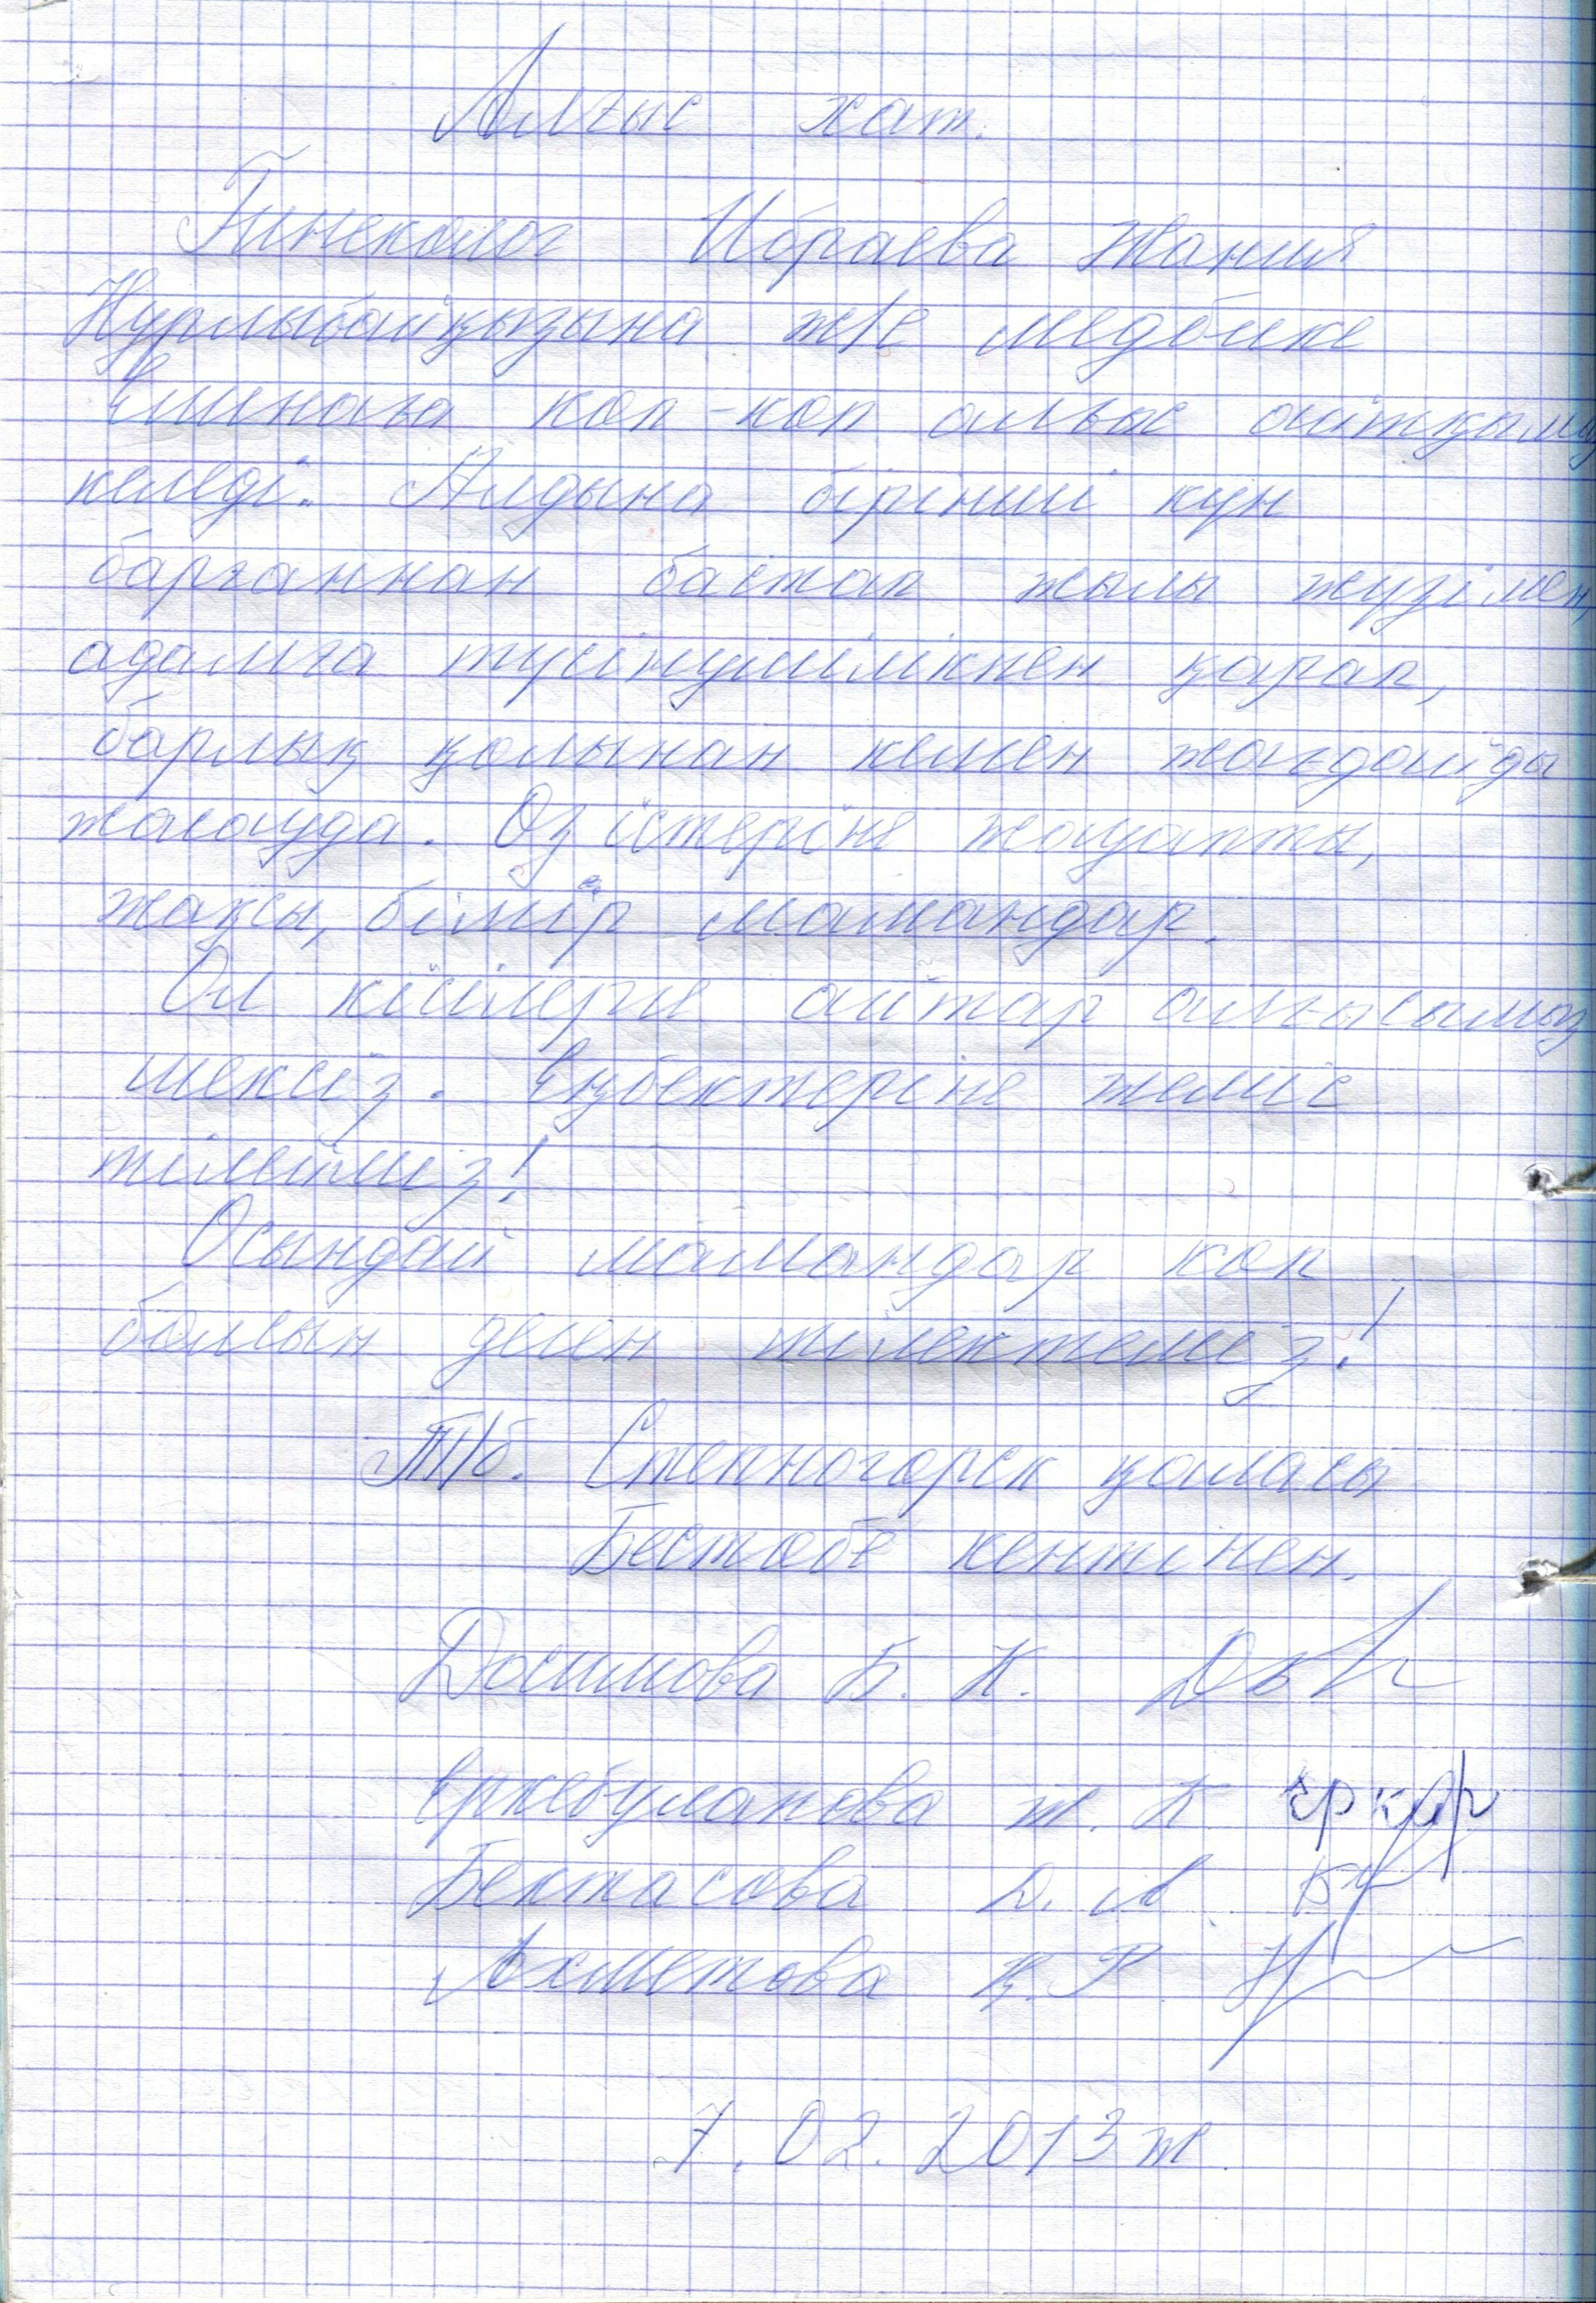 Алғыс хат.
Гинеколог Ибраева Жания
Нурлыбайқызына ж/е медбике
көп-көп алғыс айтқымыз
келеді. Алдына бірінші күн
барғаннан бастап жылы жүзімен,
адамға түсінушілікпен қарап,
барлық қолынан келген жағдайда
жасауда. Өз істеріне жауапты,
жақсы, білгір мамандар.
Ол кісілерге айтар алғысымыз
шексіз. Еңбектеріне жеміс
тілейміз!
Осындай мамандар көп
болсын деген тілектеміз!
Т/б. Степногорск қаласы
Бестөбе кентінен.
Досимова Б. К.
Еркебуланова Ж. К
Бектасова Д. А.
Ахметова Қ. Р.
7.02.2013 ж